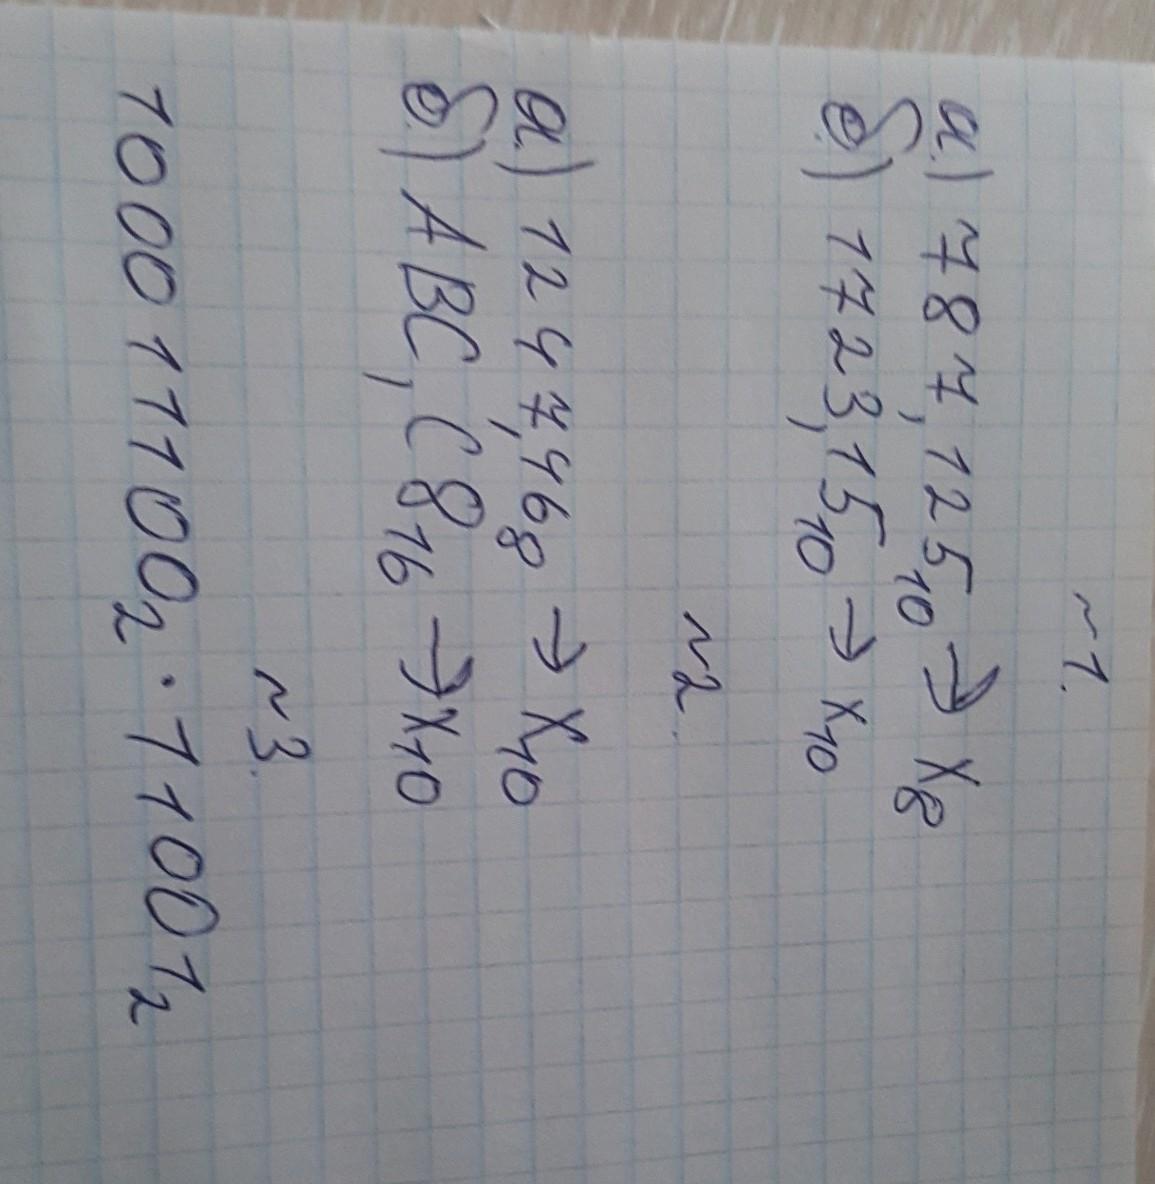 ~1.
а.) 787,125₁₀ → X₈
б.) 1723,15₁₀ → X₁₀
~2.
а.) 1247,46₈ → X₁₀
б.) ABC,C8₁₆ → X₁₀
~3.
1000111100₂ · 111001₂